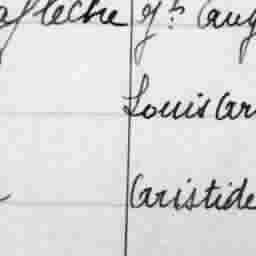 afleche Jh Aug
Louis Ar
Aristide